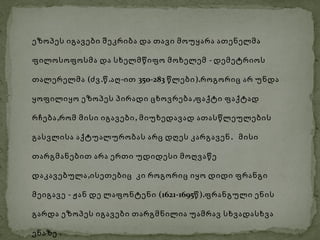 ეზოპეს იგავები შეკრიბა და თავი მოუყარა ათენელმა
ფილოსოფოსმა და სახელმწიფო მოხელემ - დემეტრიოს
თალერელმა (ძვ.წ.აღ-ით 350-283 წლები).როგორიც არ უნდა
ყოფილიყო ეზოპეს პირადი ცხოვრება,ფაქტი ფაქტად
რჩება,რომ მისი იგავები, მიუხედავად ათასწლეულების
გასვლისა აქტუალურობას არც დღეს კარგავენ. მისი
თარგმანებით არა ერთი უდიდესი მოღვაწე
დაკავებულა,ისეთებიც კი როგორიც იყო დიდი ფრანგი
მეიგავე - ჟან დე ლაფონტენი (1621-1695წ).ფრანგული ენის
გარდა ეზოპეს იგავები თარგმნილია უამრავ სხვადასხვა
ენაზე .